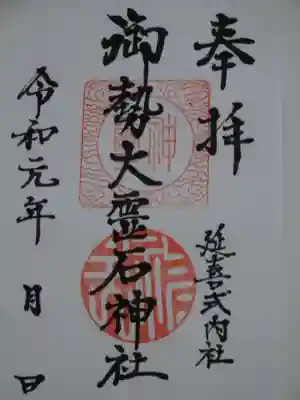 奉拝
延喜式内社
御勢大霊石神社
令和元年 月 日